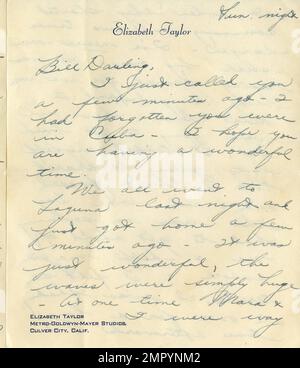 Sun. night
Elizabeth Taylor
Bill Darling,
I just called you
a few minutes ago - I
had forgotten you were
in Cuba - I hope you
are having a wonderful
time.
We all went to
Laguna last night and
just got home a few
minutes ago - It was
just wonderful, the
waves were simply huge
- At one time Mara &
I were way
ELIZABETH TAYLOR
METRO-GOLDWYN-MAYER STUDIOS,
CULVER CITY, CALIF.
alamy
Image ID: 2MPYNM2
www.alamy.com